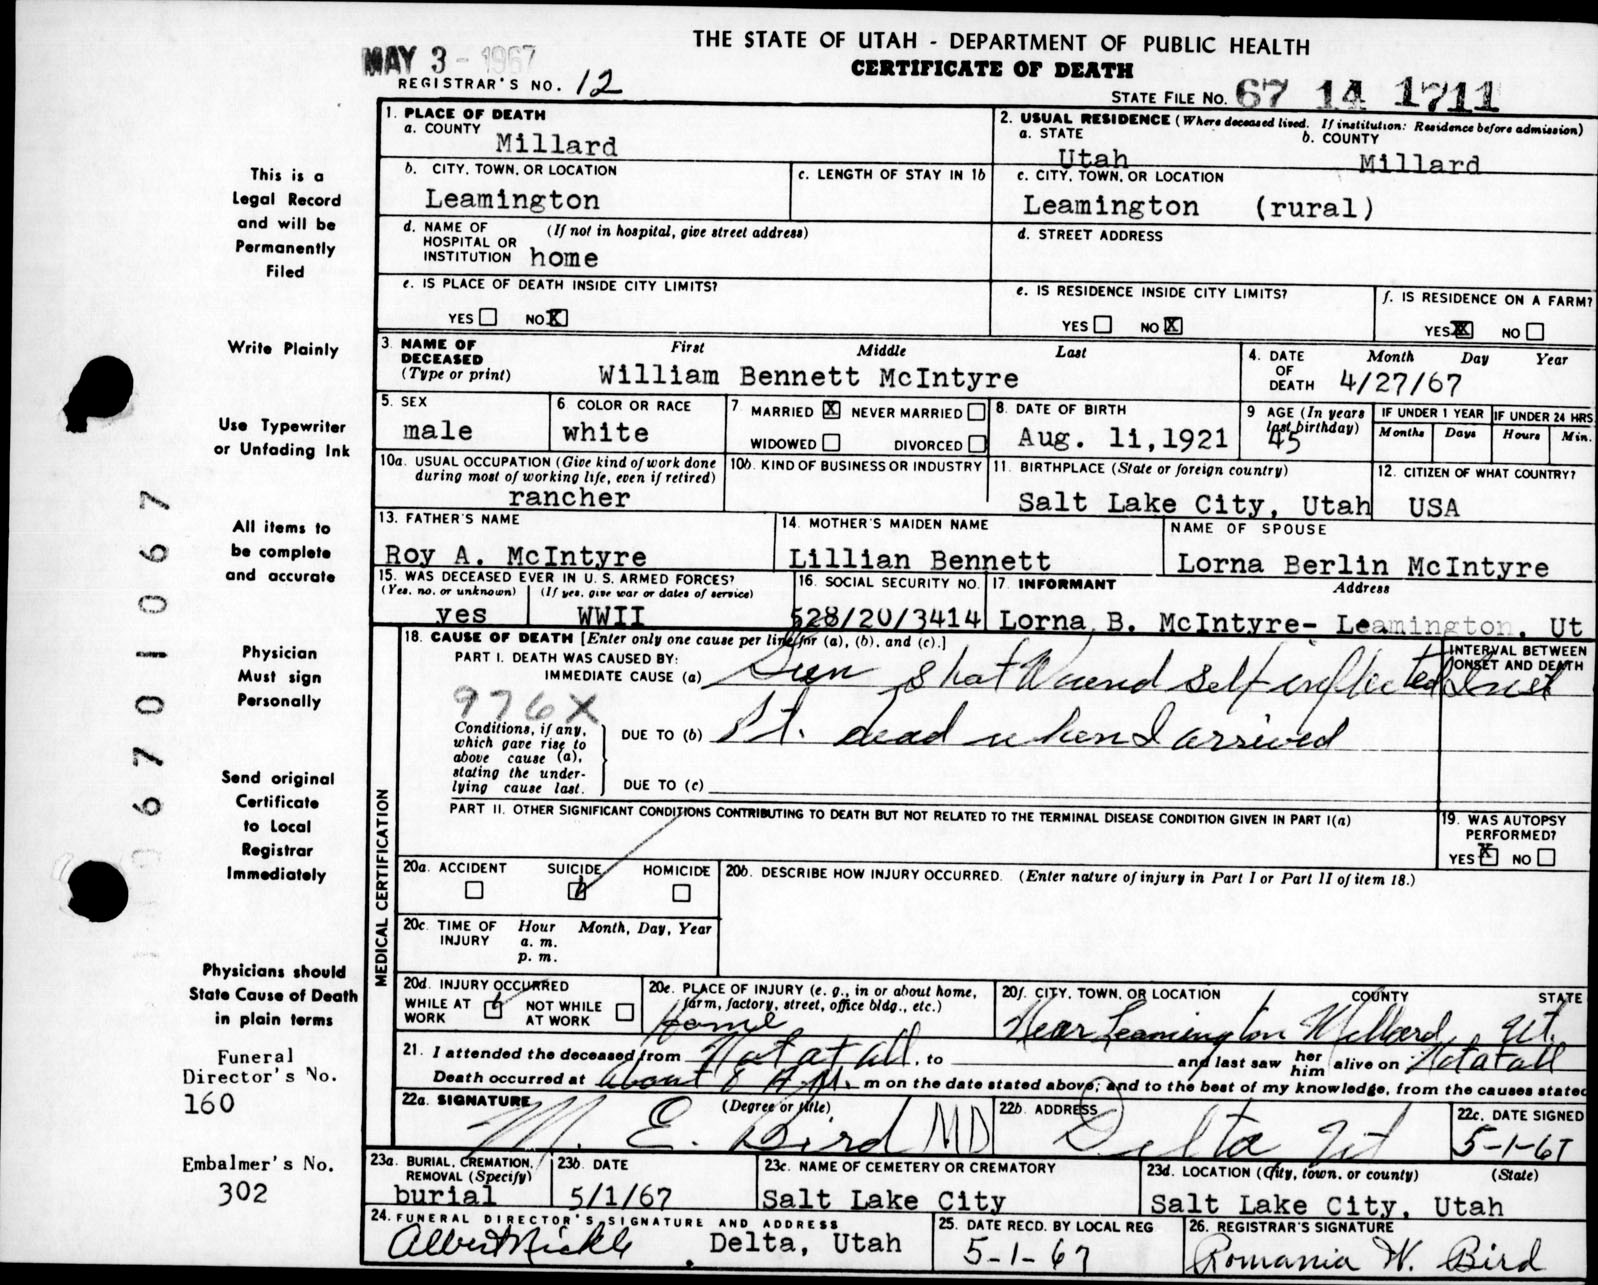 THE STATE OF UTAH - DEPARTMENT OF PUBLIC HEALTH
MAY 3 - 1967
CERTIFICATE OF DEATH
REGISTRAR'S NO. 12
STATE FILE NO. 67 14 1711
This is a
Legal Record
and will be
Permanently
Filed
Write Plainly
Use Typewriter
or Unfading Ink
All items to
be complete
and accurate
Physician
Must sign
Personally
Send original
Certificate
to Local
Registrar
Immediately
Physicians should
State Cause of Death
in plain terms
Funeral
Director's No.
160
Embalmer's No.
302
6701067
1. PLACE OF DEATH
a. COUNTY
Millard
2. USUAL RESIDENCE (Where deceased lived. If institution: Residence before admission)
a. STATE b. COUNTY
Utah Millard
b. CITY, TOWN, OR LOCATION
Leamington
c. LENGTH OF STAY IN 1b
c. CITY, TOWN, OR LOCATION
Leamington (rural)
d. NAME OF (If not in hospital, give street address)
HOSPITAL OR
INSTITUTION home
d. STREET ADDRESS
e. IS PLACE OF DEATH INSIDE CITY LIMITS?
YES NO X
e. IS RESIDENCE INSIDE CITY LIMITS?
YES NO X
f. IS RESIDENCE ON A FARM?
YES X NO
3. NAME OF First Middle Last
DECEASED
(Type or print) William Bennett McIntyre
4. DATE Month Day Year
OF
DEATH 4/27/67
5. SEX
male
6. COLOR OR RACE
white
7. MARRIED X NEVER MARRIED
WIDOWED DIVORCED
8. DATE OF BIRTH
Aug. 11,1921
9. AGE (In years
last birthday)
45
IF UNDER 1 YEAR
Months Days
IF UNDER 24 HRS.
Hours Min.
10a. USUAL OCCUPATION (Give kind of work done
during most of working life, even if retired)
rancher
10b. KIND OF BUSINESS OR INDUSTRY
11. BIRTHPLACE (State or foreign country)
Salt Lake City, Utah
12. CITIZEN OF WHAT COUNTRY?
USA
13. FATHER'S NAME
Roy A. McIntyre
14. MOTHER'S MAIDEN NAME
Lillian Bennett
NAME OF SPOUSE
Lorna Berlin McIntyre
15. WAS DECEASED EVER IN U. S. ARMED FORCES?
(Yes, no, or unknown) (If yes, give war or dates of service)
yes WWII
16. SOCIAL SECURITY NO.
528/20/3414
17. INFORMANT Address
Lorna B. McIntyre- Leamington, Ut
MEDICAL CERTIFICATION
18. CAUSE OF DEATH [Enter only one cause per line for (a), (b), and (c).]
PART I. DEATH WAS CAUSED BY:
IMMEDIATE CAUSE (a) Gun shot Wound self inflicted
INTERVAL BETWEEN
ONSET AND DEATH
976X
Conditions, if any,
which gave rise to
above cause (a),
stating the under-
lying cause last.
DUE TO (b) Pt. dead when I arrived
DUE TO (c)
PART II. OTHER SIGNIFICANT CONDITIONS CONTRIBUTING TO DEATH BUT NOT RELATED TO THE TERMINAL DISEASE CONDITION GIVEN IN PART I(a)
19. WAS AUTOPSY
PERFORMED?
YES X NO
20a. ACCIDENT SUICIDE HOMICIDE
20b. DESCRIBE HOW INJURY OCCURRED. (Enter nature of injury in Part I or Part II of item 18.)
20c. TIME OF Hour Month, Day, Year
INJURY a. m.
p. m.
20d. INJURY OCCURRED
WHILE AT WORK NOT WHILE AT WORK
20e. PLACE OF INJURY (e. g., in or about home,
farm, factory, street, office bldg., etc.)
Home
20f. CITY, TOWN, OR LOCATION COUNTY STATE
Near Leamington Millard Ut.
21. I attended the deceased from Not at all, to and last saw her him alive on Not at all
Death occurred at about 6 A.M. m on the date stated above; and to the best of my knowledge, from the causes stated
22a. SIGNATURE (Degree or title)
M. E. Bird MD
22b. ADDRESS
Delta Ut
22c. DATE SIGNED
5-1-67
23a. BURIAL, CREMATION,
REMOVAL (Specify)
burial
23b. DATE
5/1/67
23c. NAME OF CEMETERY OR CREMATORY
Salt Lake City
23d. LOCATION (City, town, or county) (State)
Salt Lake City, Utah
24. FUNERAL DIRECTOR'S SIGNATURE AND ADDRESS
Albert Nickle Delta, Utah
25. DATE RECD. BY LOCAL REG
5-1-67
26. REGISTRAR'S SIGNATURE
Romania W. Bird